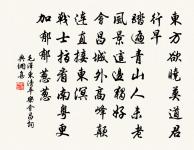 東方欲曉莫道君
行早
踏遍青山人未老
風景這邊獨好
會昌城外高峰顛
連直接東溟
戰士指看南粵更
加郁郁葱葱
毛澤東清平樂會昌詞